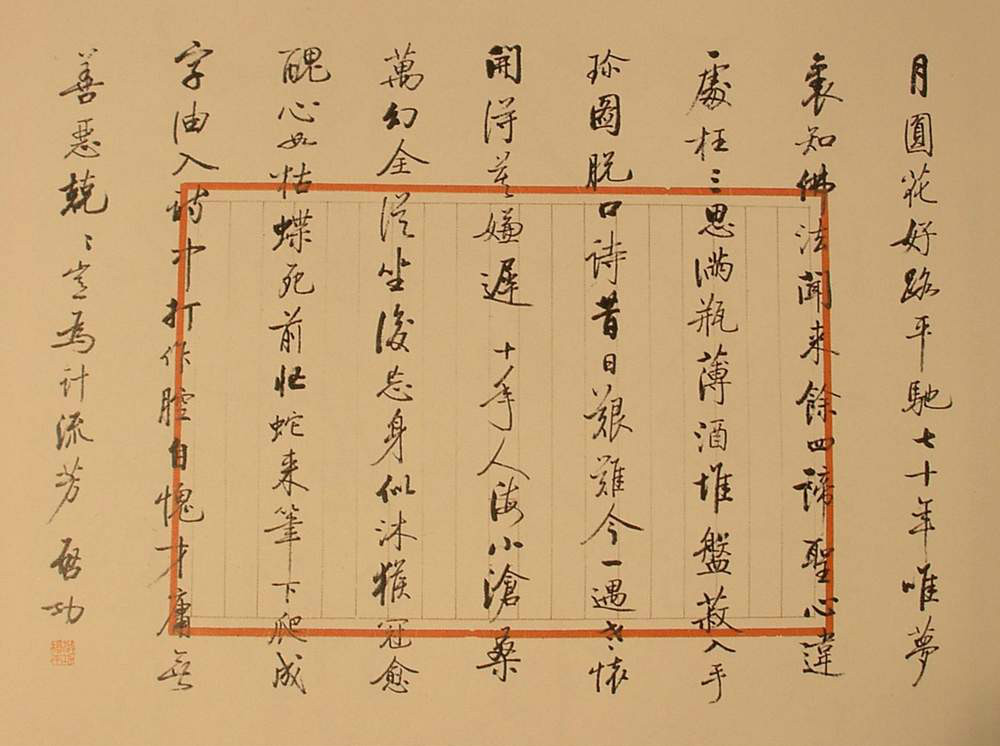 月圓花好路平馳七十年唯夢
裏知佛法聞来餘四諦聖心違
一處枉〻思滿瓶薄酒堆盤菽入手
珍圖脱口詩昔日艱難今一遇老懷
開得莫嫌遲 十年人海小滄桑
萬幻全從坐後忘身似沐猴冠愈
醜心如枯蝶死前忙蛇来筆下爬成
字油入詩中打作腔自愧才庸無
善惡兢〻豈為計流芳 啟功